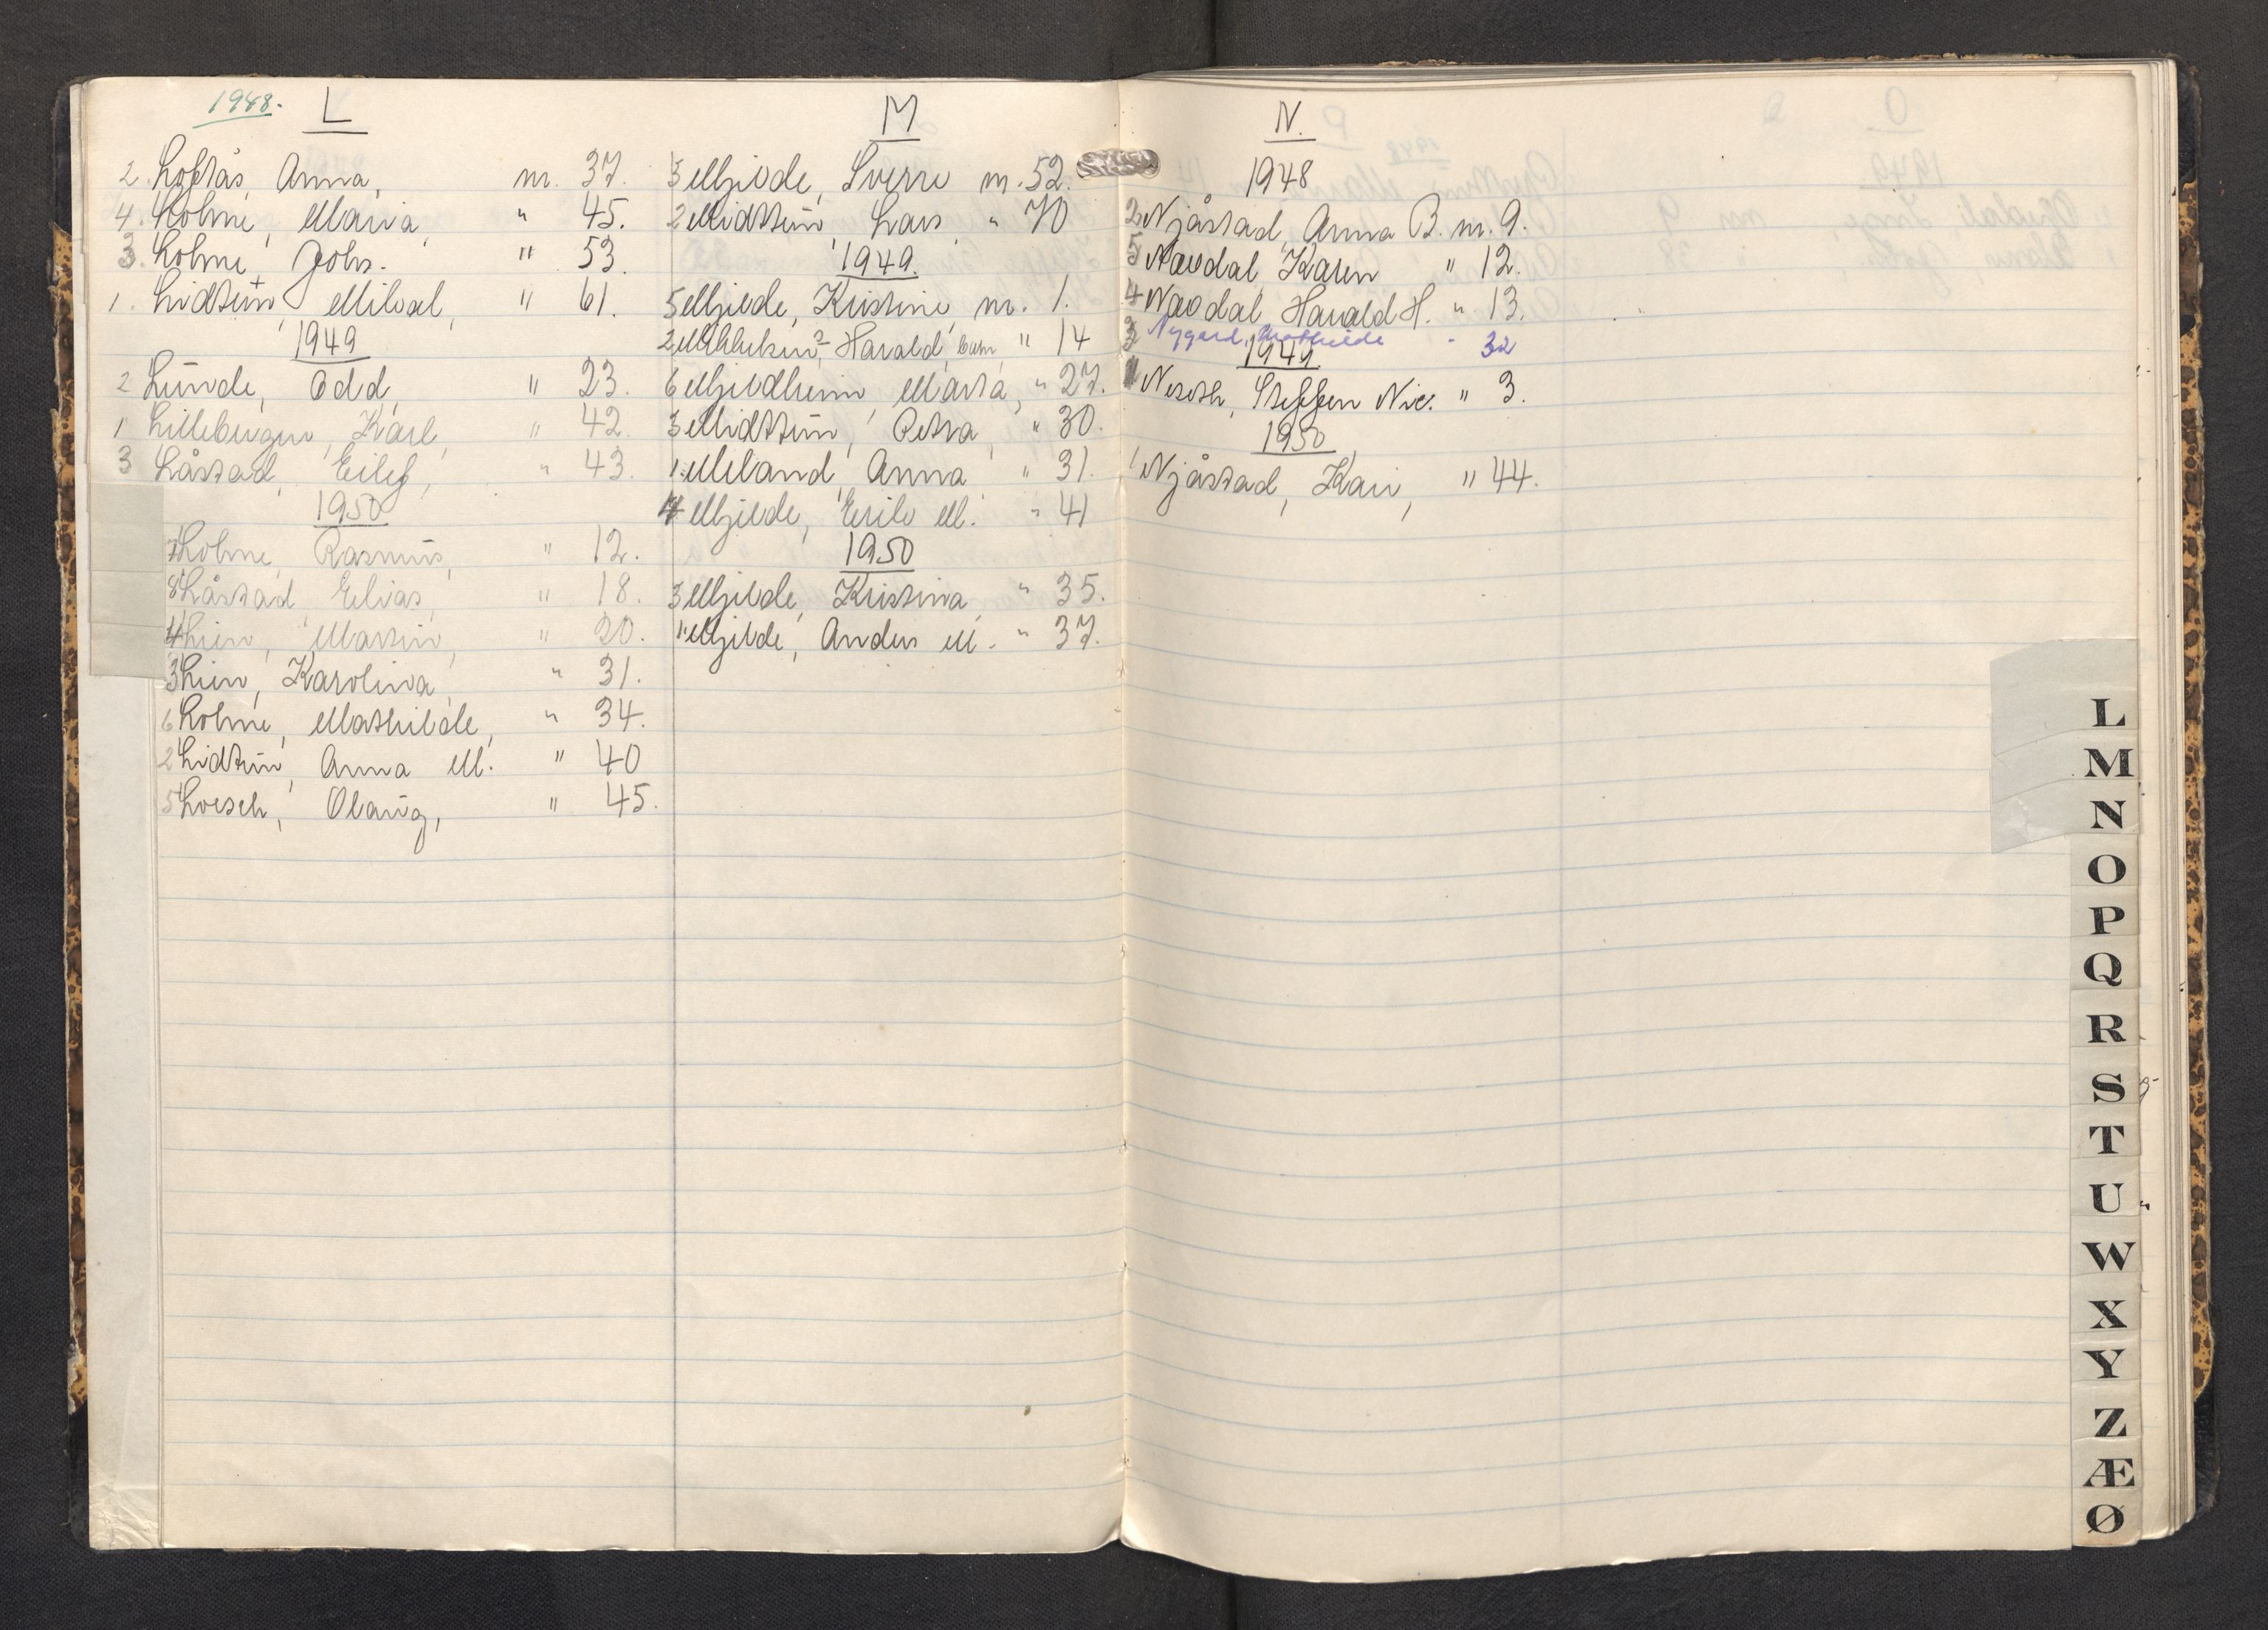 1948.
L
2. Loftås, Anna, nr. 37.
4. Lohne, Maria, " 45.
3. Lohne, Johs. " 53.
1. Lidtun, Mikal, " 61.
1949
2 Lunde, Odd, " 23.
1 Lillebergen, Karl, " 42.
3 Låstad, Eilef, " 43.
1950
7 Lohne, Rasmus, " 12.
8 Låstad, Elias, " 18.
4 Lien, Martin, " 20.
3 Lien, Karolina, " 31.
6 Lohne, Mathilde, " 34.
2 Lidtun, Anna M. " 40
5 Loesch, Olaug, " 45.
M
3 Mjelde, Sverre nr. 52.
2 Midttun, Lars, " 70
1949.
5 Mjelde, Kristine, nr. 1.
2 Harald, barn " 14
6 Mjeldheim, Marta, " 27.
3 Midttun, Petra, " 30.
1. Meland, Anna " 31.
4 Mjelde, Erik M. " 41
1950
3 Mjelde, Kristina, " 35.
1 Mjelde, Anders M. " 37.
N.
1948
2 Njåstad, Anna B. nr. 9.
5 Navdal, Karen " 12.
4 Navdal, Harald H. " 13.
3 Nygard, Mathilde " 32
1949
1 Neseth, Steffen Nic. " 3.
1950
1 Njåstad, Kari, " 44.
L
M
N
O
P
Q
R
S
T
U
W
X
Y
Z
Æ
Ø